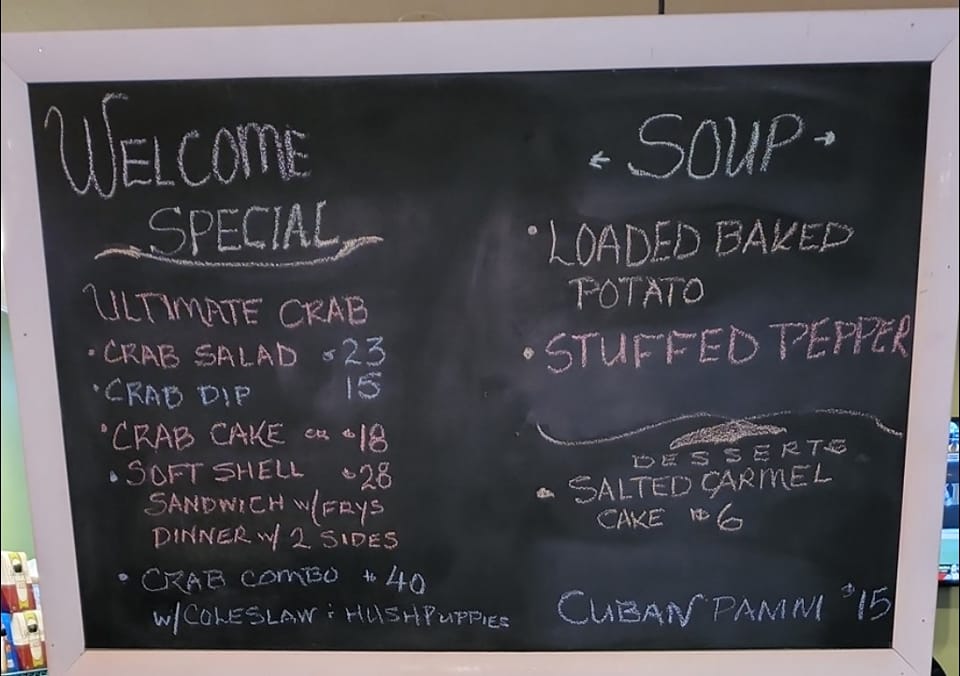 WELCOME
SPECIAL
ULTIMATE CRAB
• CRAB SALAD $23
• CRAB DIP 15
• CRAB CAKE OR $18
• SOFT SHELL $28
SANDWICH W/FRYS
DINNER W/ 2 SIDES
• CRAB COMBO $40
W/COLESLAW & HUSHPUPPIES
← SOUP →
• LOADED BAKED
POTATO
• STUFFED PEPPER
DESSERTS
• SALTED CARMEL
CAKE $6
CUBAN PANINI $15